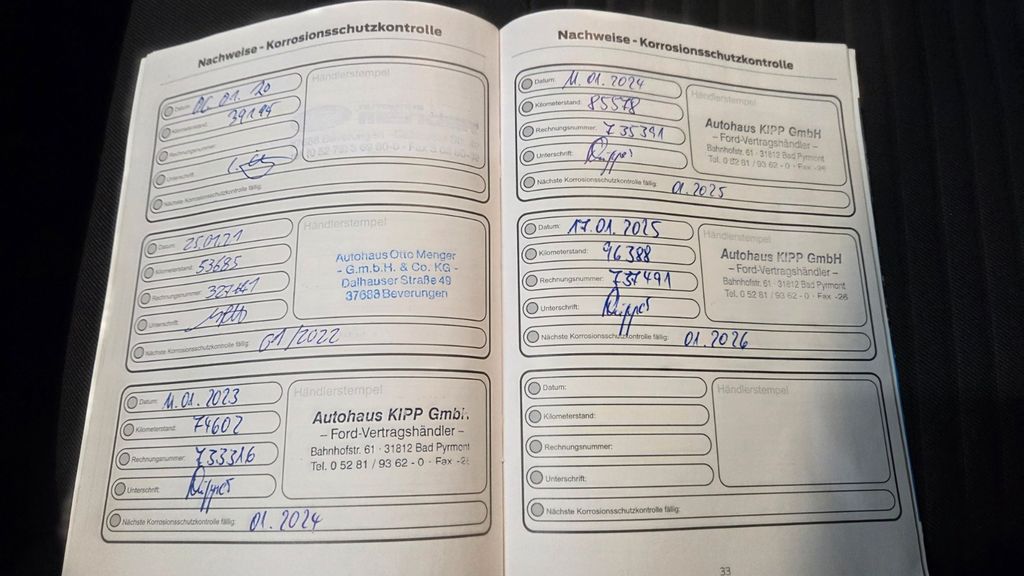 Nachweise - Korrosionsschutzkontrolle
Datum: 06 01. 20
Händlerstempel
Kilometerstand:
Rechnungsnummer:
Unterschrift:
Nächste Korrosionsschutzkontrolle fällig:
Datum: 25.01.21
Händlerstempel
Kilometerstand: 53685
Rechnungsnummer:
Unterschrift:
Autohaus Otto Menger
- G.m.b.H. & Co. KG -
Dalhauser Straße 49
37688 Beverungen
Nächste Korrosionsschutzkontrolle fällig: 01/2022
Datum: 11.01.2023
Händlerstempel
Kilometerstand: 74602
Rechnungsnummer: 733316
Unterschrift:
Autohaus KIPP GmbH
– Ford-Vertragshändler –
Bahnhofstr. 61 · 31812 Bad Pyrmont
Tel. 0 52 81 / 93 62 - 0 · Fax -26
Nächste Korrosionsschutzkontrolle fällig: 01.2024
Nachweise - Korrosionsschutzkontrolle
Datum: 11.01.2024
Händlerstempel
Kilometerstand: 85578
Rechnungsnummer: 735391
Unterschrift:
Autohaus KIPP GmbH
– Ford-Vertragshändler –
Bahnhofstr. 61 · 31812 Bad Pyrmont
Tel. 0 52 81 / 93 62 - 0 · Fax -26
Nächste Korrosionsschutzkontrolle fällig: 01.2025
Datum: 17.01.2025
Händlerstempel
Kilometerstand: 96388
Rechnungsnummer: 737491
Unterschrift:
Autohaus KIPP GmbH
– Ford-Vertragshändler –
Bahnhofstr. 61 · 31812 Bad Pyrmont
Tel. 0 52 81 / 93 62 - 0 · Fax -26
Nächste Korrosionsschutzkontrolle fällig: 01.2026
Datum:
Händlerstempel
Kilometerstand:
Rechnungsnummer:
Unterschrift:
Nächste Korrosionsschutzkontrolle fällig:
33